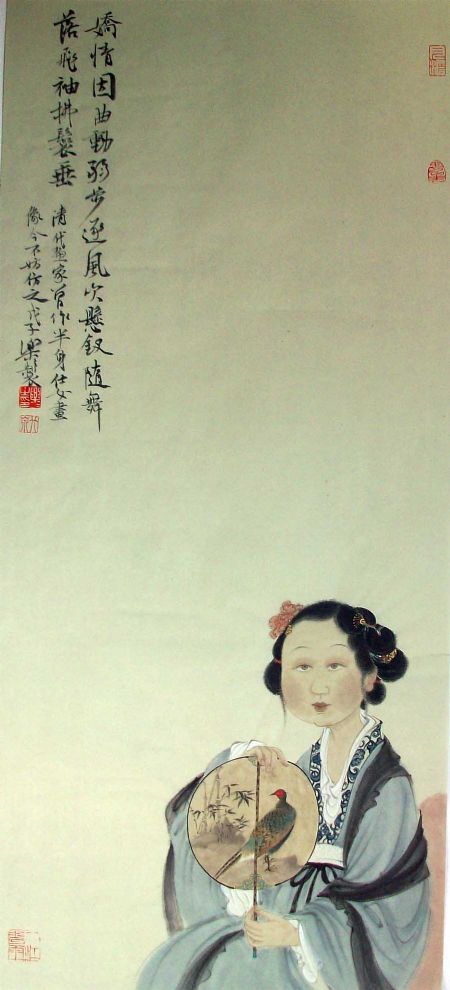 嬌情因曲動弱步逐風吹懸釵隨舞
落飛袖拂鬟垂
清代畫家曾作半身仕女畫
像今不妨仿之戊子